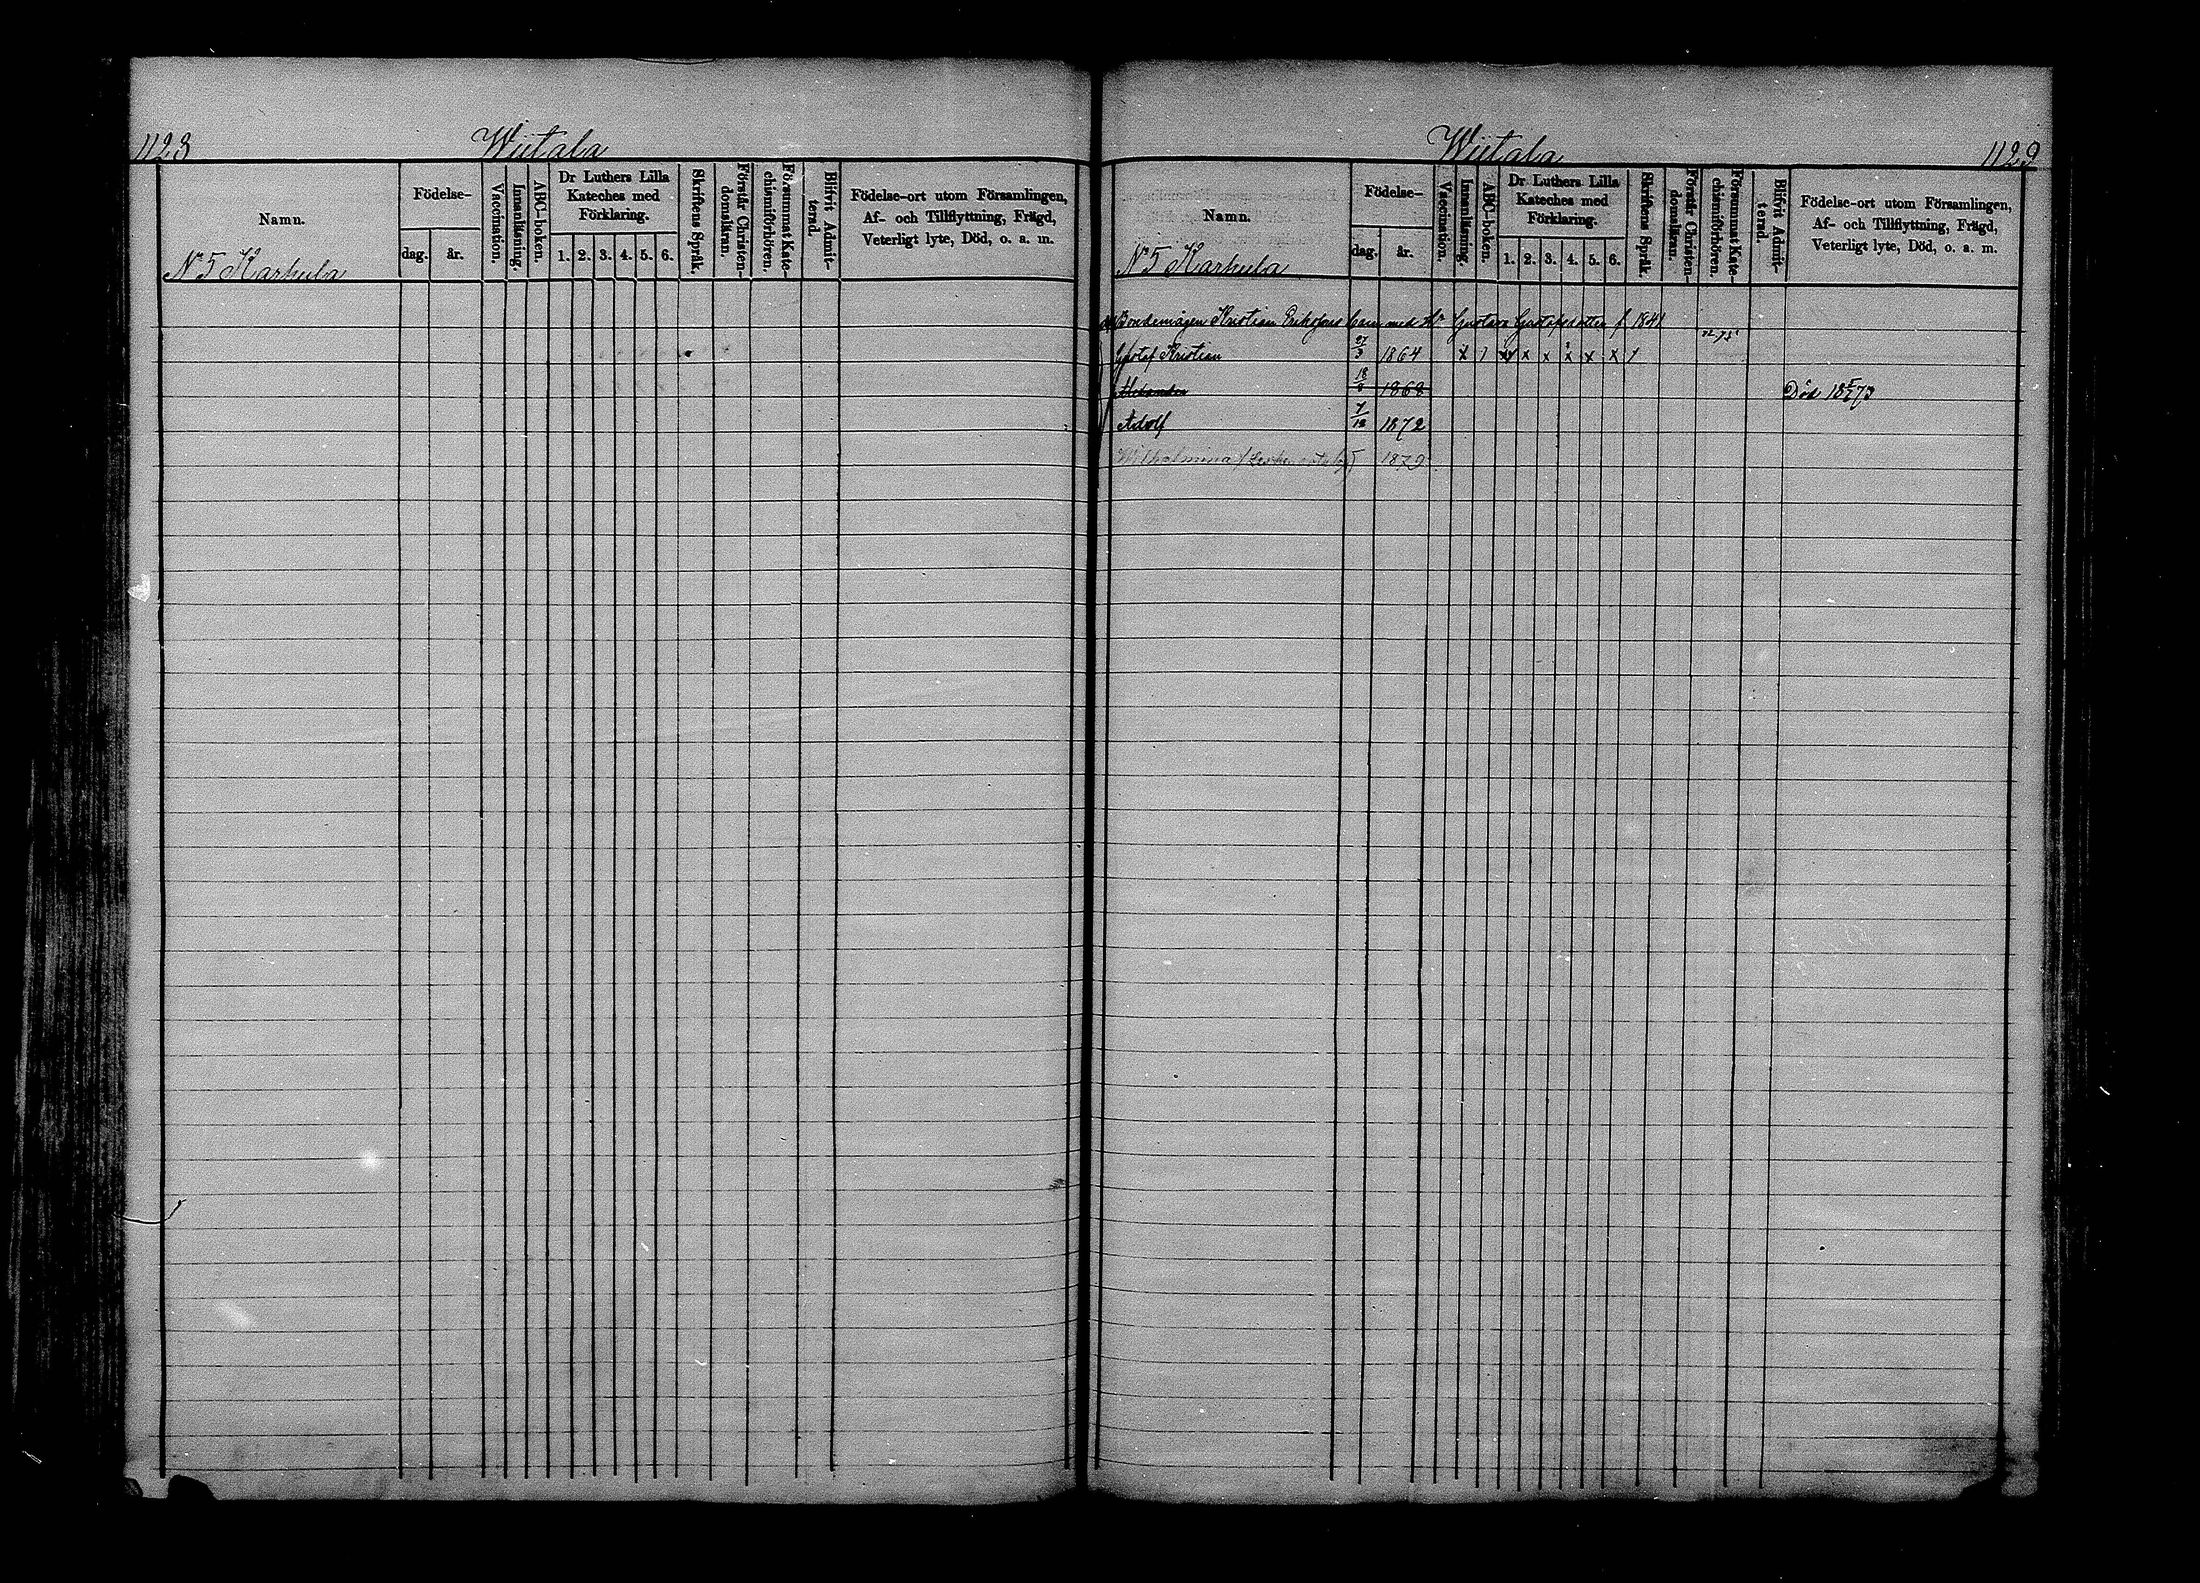 1128
Wiitala
Namn.
Födelse-
dag.
år.
Vaccination.
Innanläsning.
ABC-boken.
Dr Luthers Lilla
Kateches med
Förklaring.
1. 2. 3. 4. 5. 6.
Skriftens Språk.
Förstår Christen-
domsläran.
Försummat Kate-
chismiförhören.
Blifvit Admit-
terad.
Födelse-ort utom Församlingen,
Af- och Tillflyttning, Frägd,
Veterligt lyte, Död, o. a. m.
N 5 Karhula
Wiitala
1129
Namn.
Födelse-
dag.
år.
Vaccination.
Innanläsning.
ABC-boken.
Dr Luthers Lilla
Kateches med
Förklaring.
1. 2. 3. 4. 5. 6.
Skriftens Språk.
Förstår Christen-
domsläran.
Försummat Kate-
chismiförhören.
Blifvit Admit-
terad.
Födelse-ort utom Församlingen,
Af- och Tillflyttning, Frägd,
Veterligt lyte, Död, o. a. m.
N 5 Karhula
Bondemågen Kristian Eriksfons barn med Gustava Gustafsdotter f 1841
Gustaf Kristian 27/3 1864 x 1 x x x x x x
Alexander 18/8 1868 Död 18 73
Adolf 7/12 1872
Wilhelmina 1879